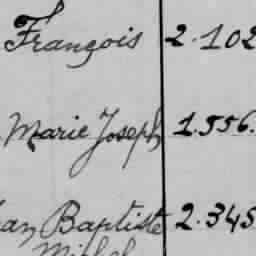 François 2.102
Marie Joseph 1.556.
Baptiste 2.345